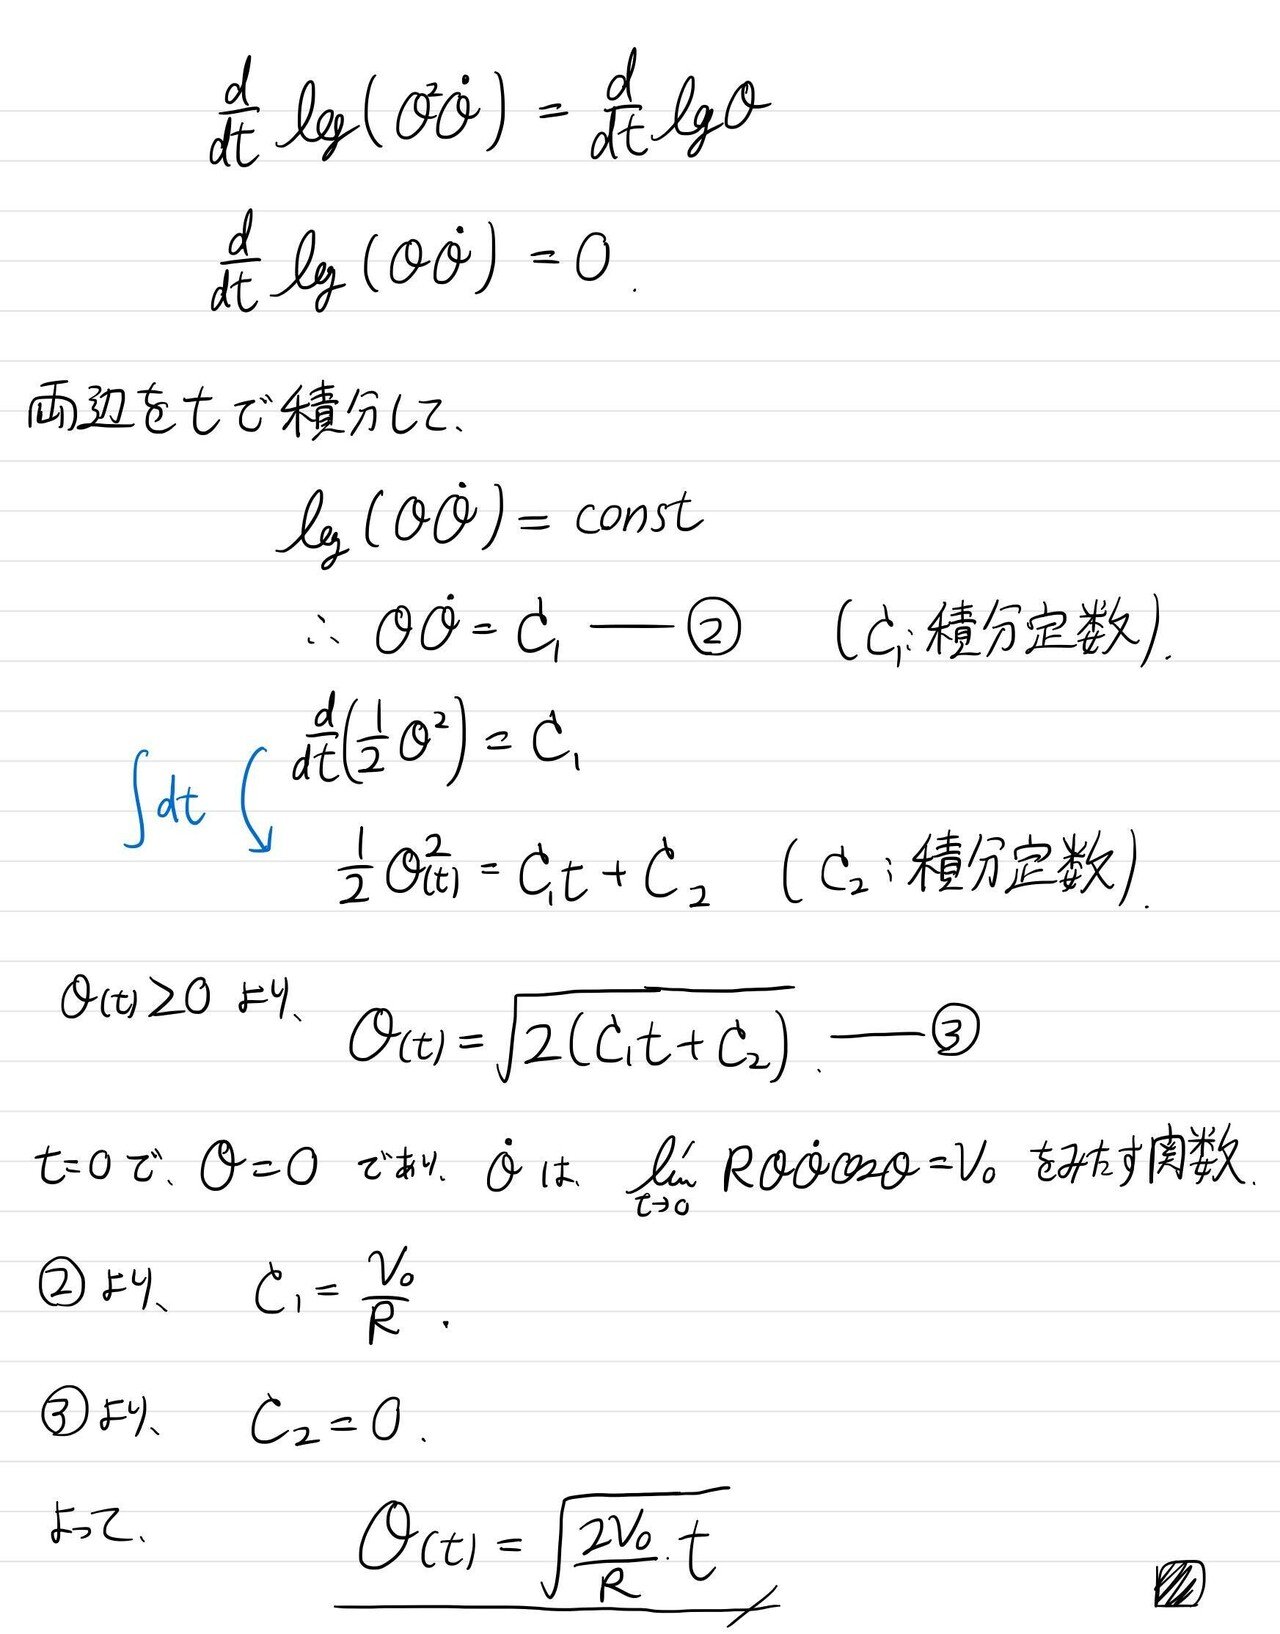 d/dt log(θ²θ̇) = d/dt logθ
d/dt log(θθ̇) = 0.
両辺をtで積分して、
log(θθ̇) = const
∴ θθ̇ = C₁ ― ② (C₁: 積分定数).
d/dt(1/2 θ²) = C₁
∫dt
1/2 θ²(t) = C₁t + C₂ (C₂: 積分定数).
θ(t)≥0 より、
θ(t) = √(2(C₁t + C₂)). ― ③
t=0で、θ=0 であり、θ̇ は、 lim t→0 Rθθ̇cosθ = V₀ をみたす関数.
②より、 C₁ = V₀/R.
③より、 C₂ = 0.
よって、
θ(t) = √(2V₀/R · t)